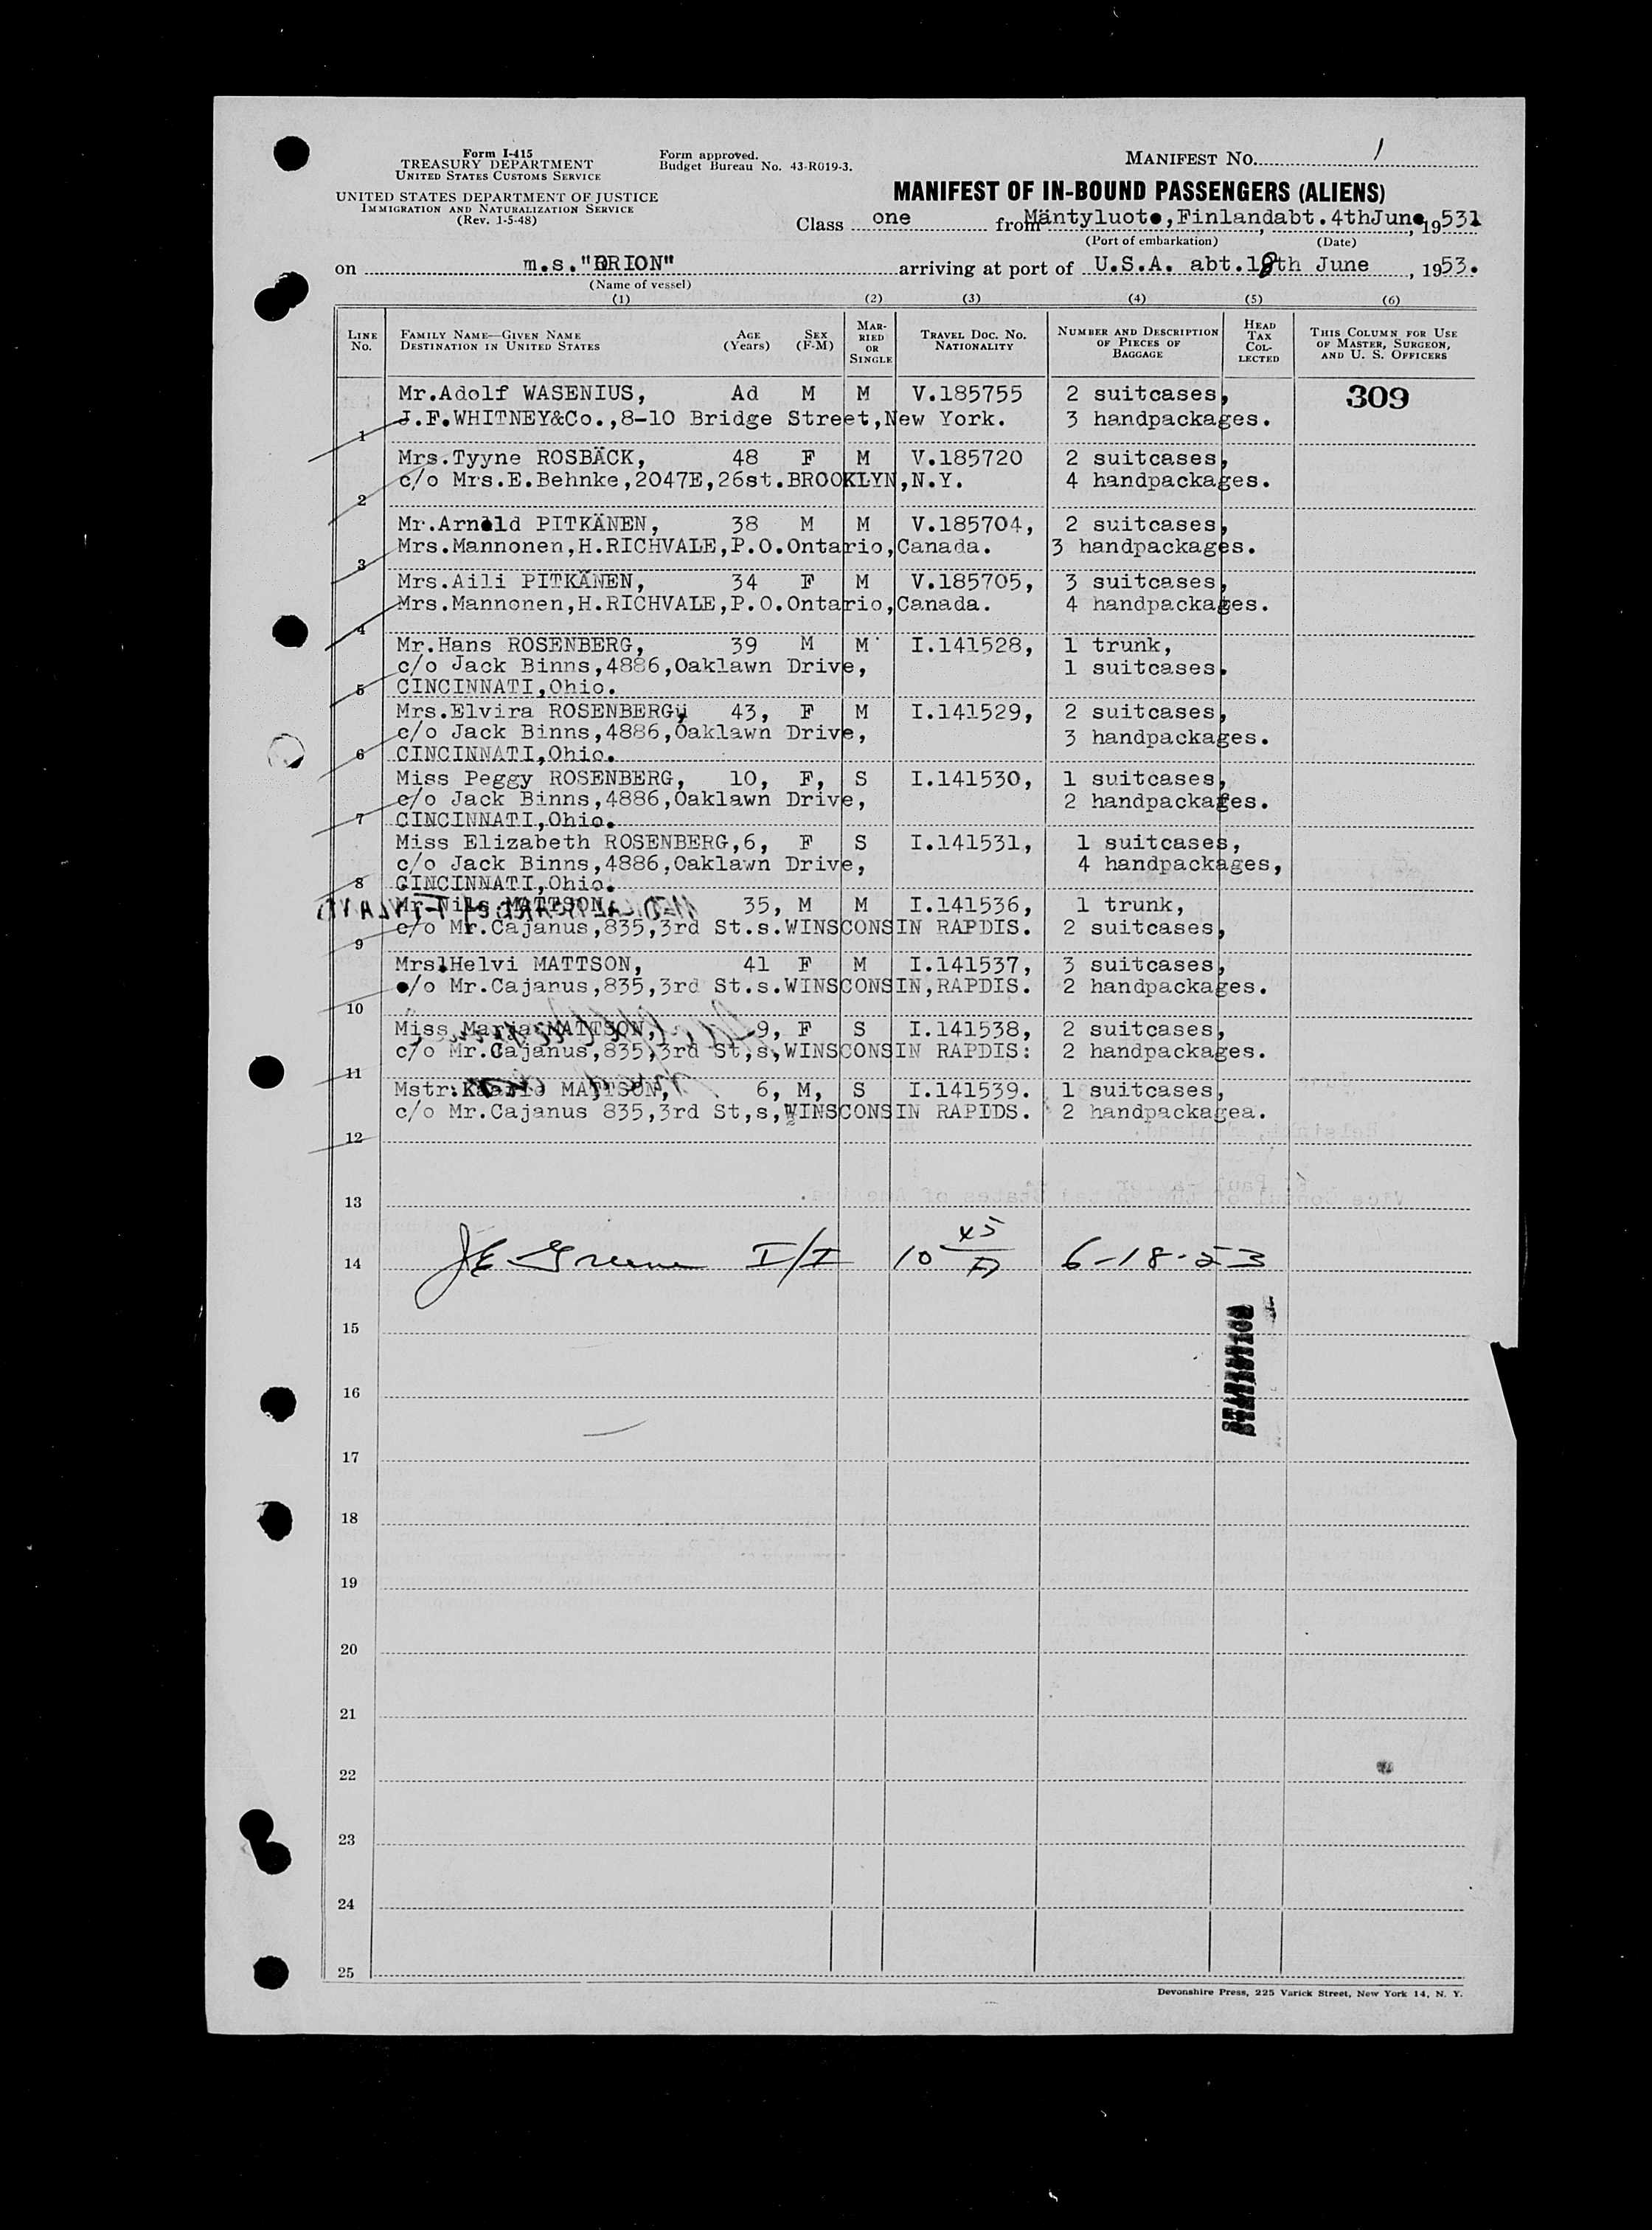 Form I-415
TREASURY DEPARTMENT
UNITED STATES CUSTOMS SERVICE
UNITED STATES DEPARTMENT OF JUSTICE
IMMIGRATION AND NATURALIZATION SERVICE
(Rev. 1-5-48)
Form approved.
Budget Bureau No. 43-R019-3.
MANIFEST No. 1
MANIFEST OF IN-BOUND PASSENGERS (ALIENS)
Class one from Mäntyluoto,Finland abt.4thJune, 1953
(Port of embarkation) (Date)
on m.s."ORION" arriving at port of U.S.A. abt.18th June, 1953.
(Name of vessel)
(1) (2) (3) (4) (5) (6)
LINE No. FAMILY NAME—GIVEN NAME DESTINATION IN UNITED STATES AGE (Years) SEX (F-M) MARRIED OR SINGLE TRAVEL DOC. NO. NATIONALITY NUMBER AND DESCRIPTION OF PIECES OF BAGGAGE HEAD TAX COLLECTED THIS COLUMN FOR USE OF MASTER, SURGEON, AND U. S. OFFICERS
Mr.Adolf WASENIUS, Ad M M V.185755 2 suitcases, 309
1 J.F.WHITNEY&Co.,8-10 Bridge Street,New York. 3 handpackages.
Mrs.Tyyne ROSBÄCK, 48 F M V.185720 2 suitcases,
2 c/o Mrs.E.Behnke,2047E,26st.BROOKLYN,N.Y. 4 handpackages.
Mr.Arnold PITKÄNEN, 38 M M V.185704, 2 suitcases,
3 Mrs.Mannonen,H.RICHVALE,P.O.Ontario,Canada. 3 handpackages.
Mrs.Aili PITKÄNEN, 34 F M V.185705, 3 suitcases,
4 Mrs.Mannonen,H.RICHVALE,P.O.Ontario,Canada. 4 handpackages.
Mr.Hans ROSENBERG, 39 M M I.141528, 1 trunk,
c/o Jack Binns,4886,Oaklawn Drive, 1 suitcases.
5 CINCINNATI,Ohio.
Mrs.Elvira ROSENBERG, 43, F M I.141529, 2 suitcases,
c/o Jack Binns,4886,Oaklawn Drive, 3 handpackages.
6 CINCINNATI,Ohio.
Miss Peggy ROSENBERG, 10, F, S I.141530, 1 suitcases,
c/o Jack Binns,4886,Oaklawn Drive, 2 handpackages.
7 CINCINNATI,Ohio.
Miss Elizabeth ROSENBERG,6, F S I.141531, 1 suitcases,
c/o Jack Binns,4886,Oaklawn Drive, 4 handpackages,
8 CINCINNATI,Ohio.
Mr.Nils MATTSON, 35, M M I.141536, 1 trunk,
9 c/o Mr.Cajanus,835,3rd St.s.WINSCONSIN RAPDIS. 2 suitcases,
Mrs.Helvi MATTSON, 41 F M I.141537, 3 suitcases,
10 c/o Mr.Cajanus,835,3rd St.s.WINSCONSIN,RAPDIS. 2 handpackages.
Miss Maria MATTSON, 9, F S I.141538, 2 suitcases,
11 c/o Mr.Cajanus,835,3rd St,s,WINSCONSIN RAPDIS: 2 handpackages.
Mstr. MATTSON, 6, M, S I.141539. 1 suitcases,
c/o Mr.Cajanus 835,3rd St,s,WINSCONSIN RAPIDS. 2 handpackagea.
12
13
14 JE Greene I/I 10 45/A 6-18-53
15
16
17
18
19
20
21
22
23
24
25
Devonshire Press, 225 Varick Street, New York 14, N. Y.